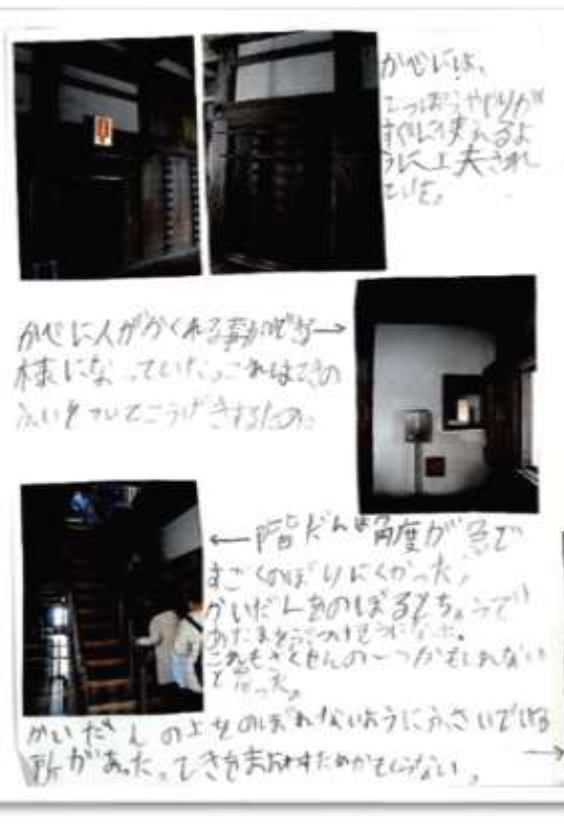 かべには、
てっぽうややりが
すぐに使えるよ
うに工夫され
ていた。
かべに人がかくれる事ができる→
様になっていた。これはてきの
ふいをついてこうげきするため。
←階だんは角度が急で
すごくのぼりにくかった。
かいだんをのぼるとちゅうで
あたまをぶつけそうになった。
これもさくせんの一つかもしれない
と思った。
かいだんの上をのぼれないようにふさいである
所があった。てきをまどわすためかもしれない。
→